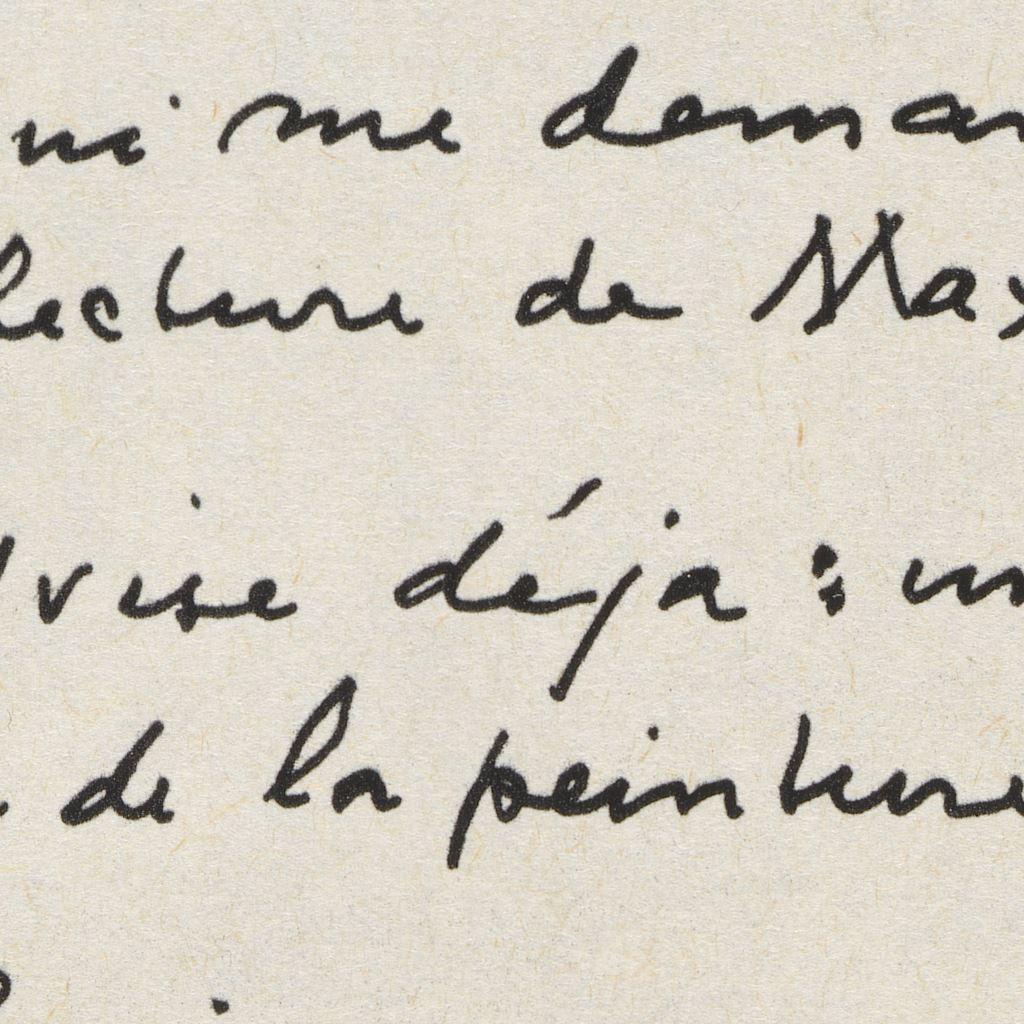 ui me deman
lecture de Max
vise déja : un
de la peinture